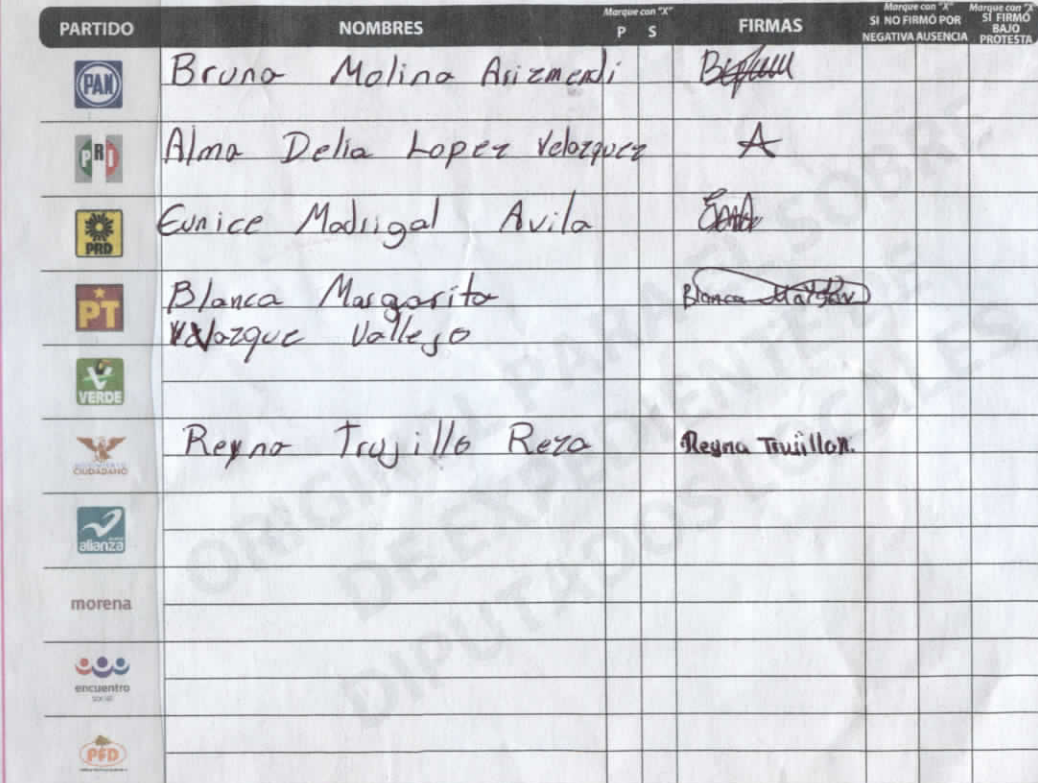 PARTIDO NOMBRES Marque con "X" P S FIRMAS Marque con "X" SI NO FIRMÓ POR NEGATIVA AUSENCIA Marque con "X" SI FIRMÓ BAJO PROTESTA
PAN Bruno Molina Arizmendi
PRI Alma Delia Lopez Velazquez A
PRD Eunice Madrigal Avila
PT Blanca Margarita Blanca
Vallejo
VERDE
CIUDADANO Reyna Trujillo Reza Reyna Trujillo R.
alianza
morena
encuentro
social
PFD
ORIGINAL PARA EL SOBRE
DE EXPEDIENTE DE
DIPUTADOS LOCALES